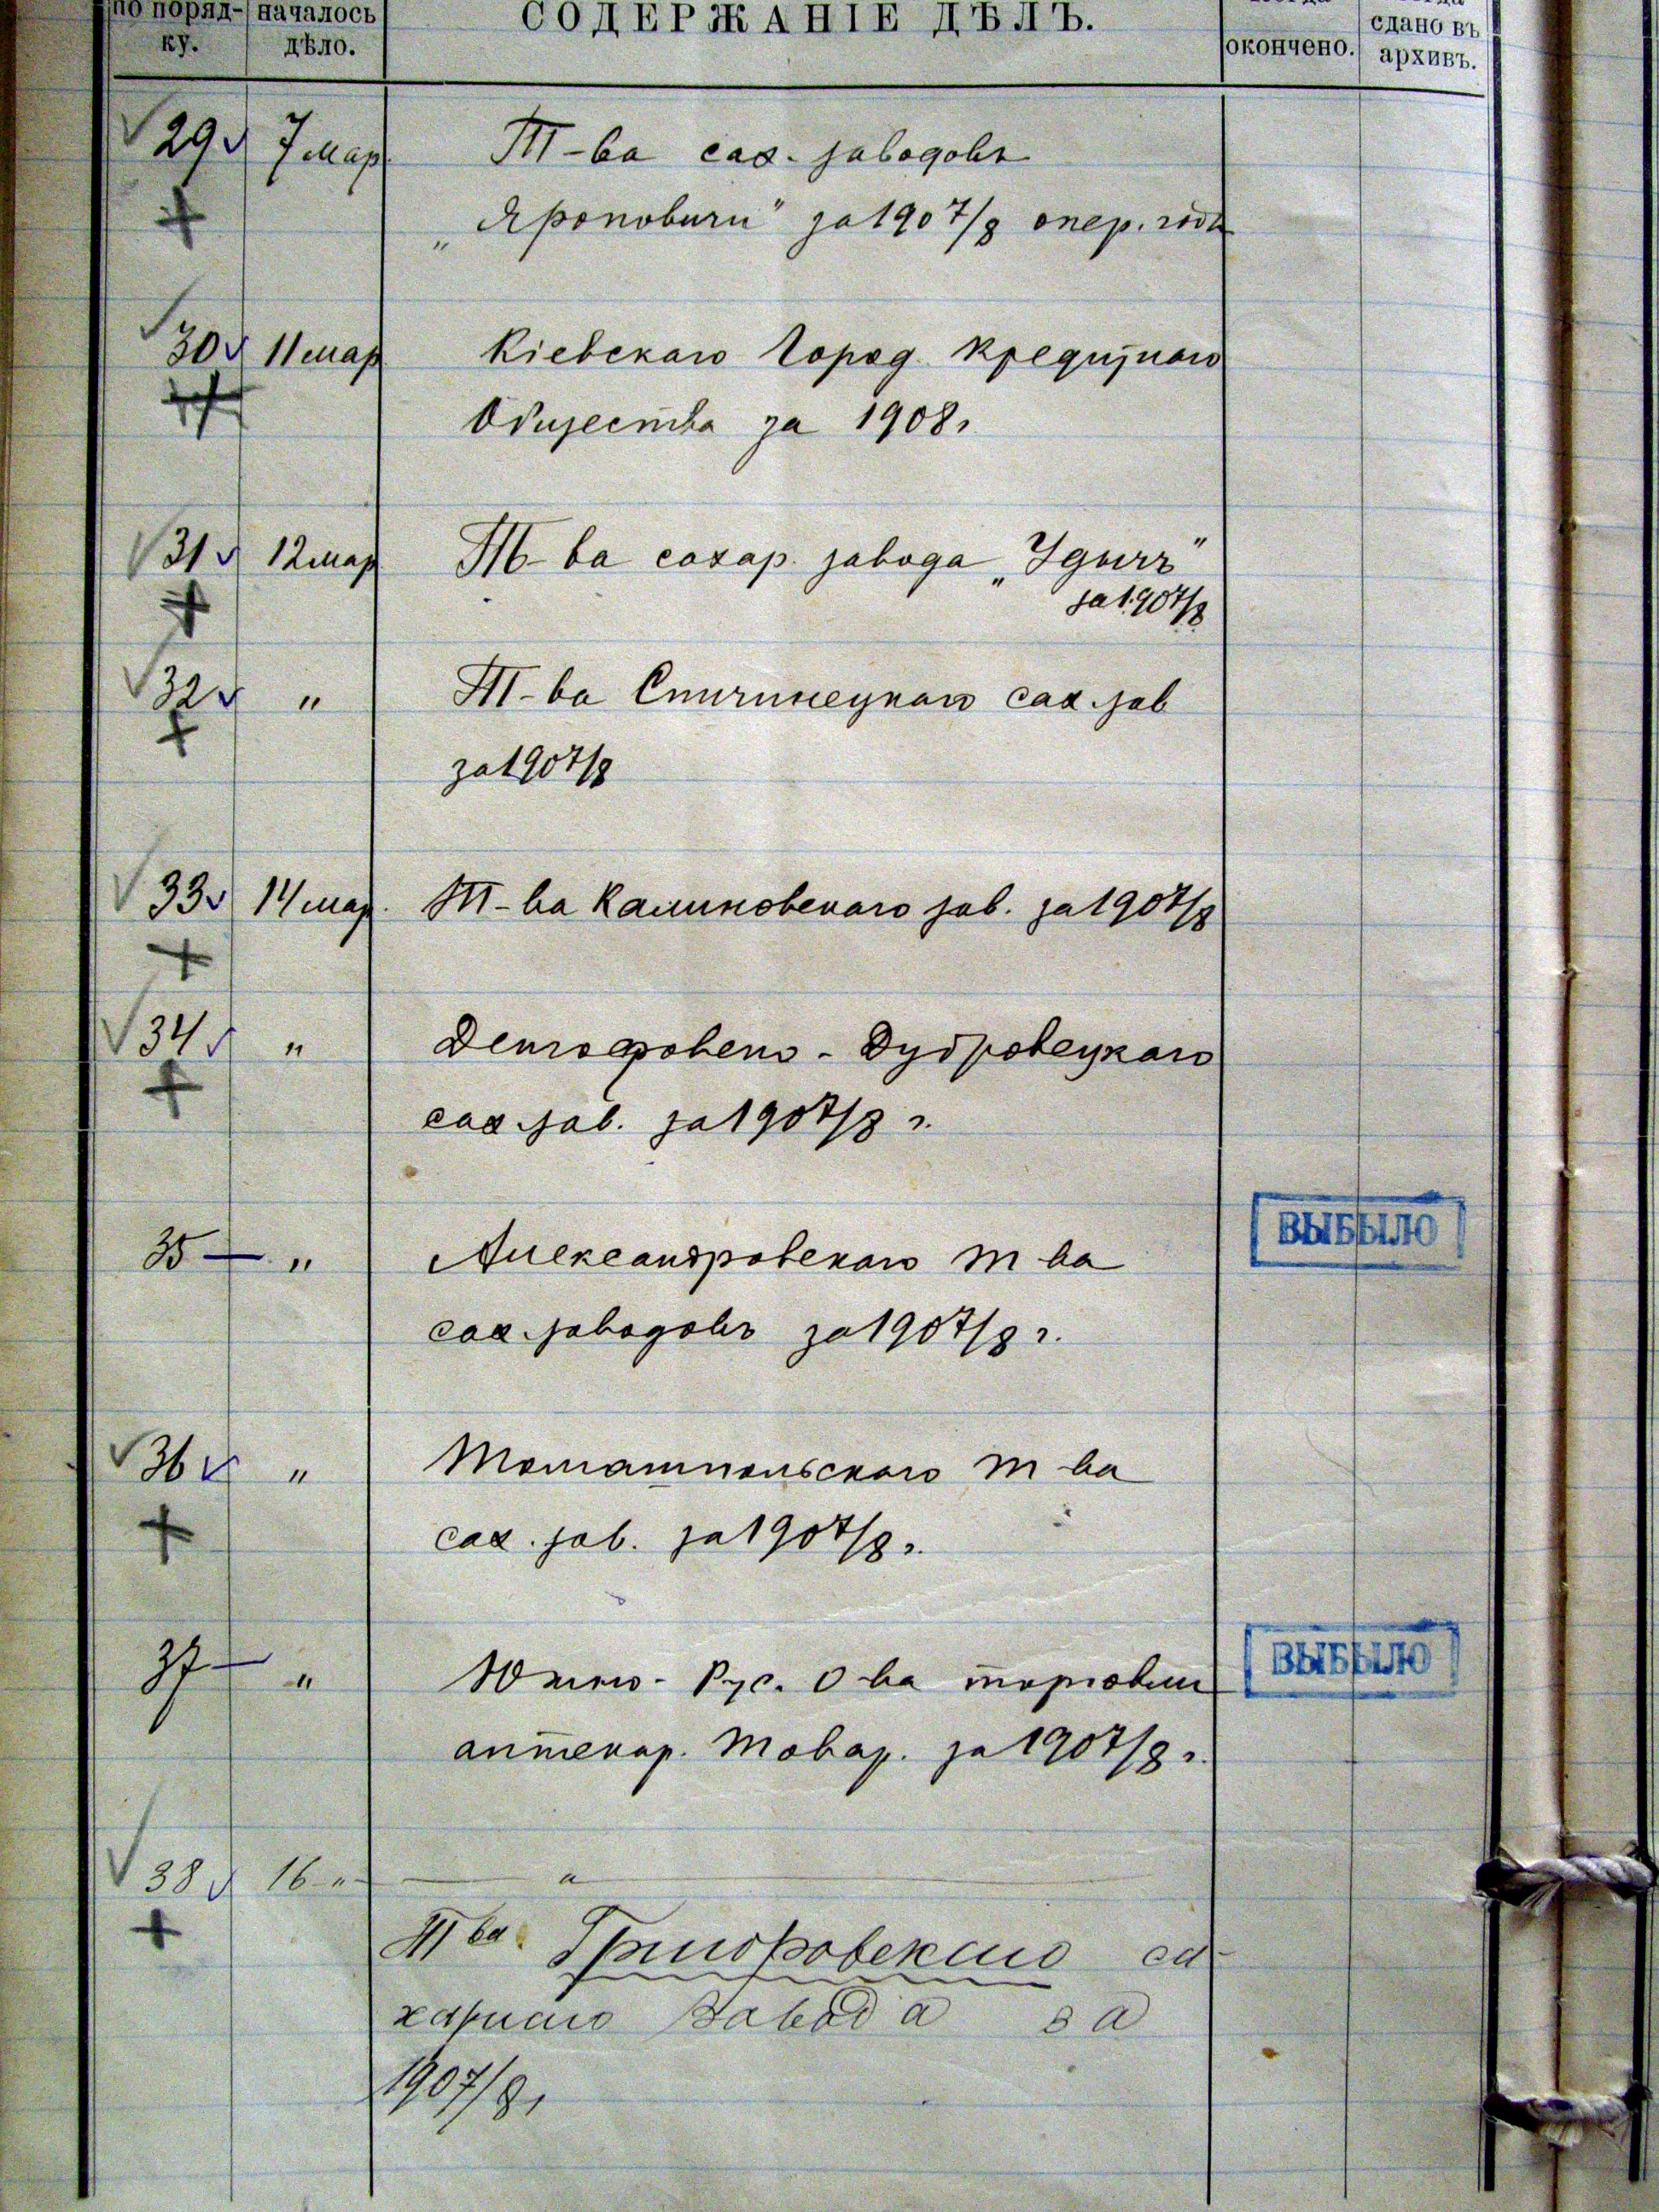 по поряд- началось СОДЕРЖАНІЕ ДѢЛЪ. сдано въ
ку. дѣло. окончено. архивъ.
29 7 мар. Т-ва сах. заводовъ
„Яроповичи" за 1907/8 опер. годъ
30 11 мар Кіевскаго Город. Кредитнаго
Общества за 1908 г
31 12 мар Т-ва сахар. завода „Удычъ"
за 1907/8
32 " Т-ва Спичинецкаго сах. зав
за 1907/8
33 14 мар. Т-ва Калиновскаго зав. за 1907/8
34 " - Дубровецкаго
сах. зав. за 1907/8 г.
35 — " Александровскаго т-ва ВЫБЫЛО
сах. заводовъ за 1907/8 г.
36 " Томашпольскаго т-ва
сах. зав. за 1907/8 г.
37 — " Южно-Рус. О-ва торговли ВЫБЫЛО
аптекар. товар. за 1907/8 г.
38 16 " — " —
Т-ва Григоровскаго са-
харнаго завода за
1907/8 г